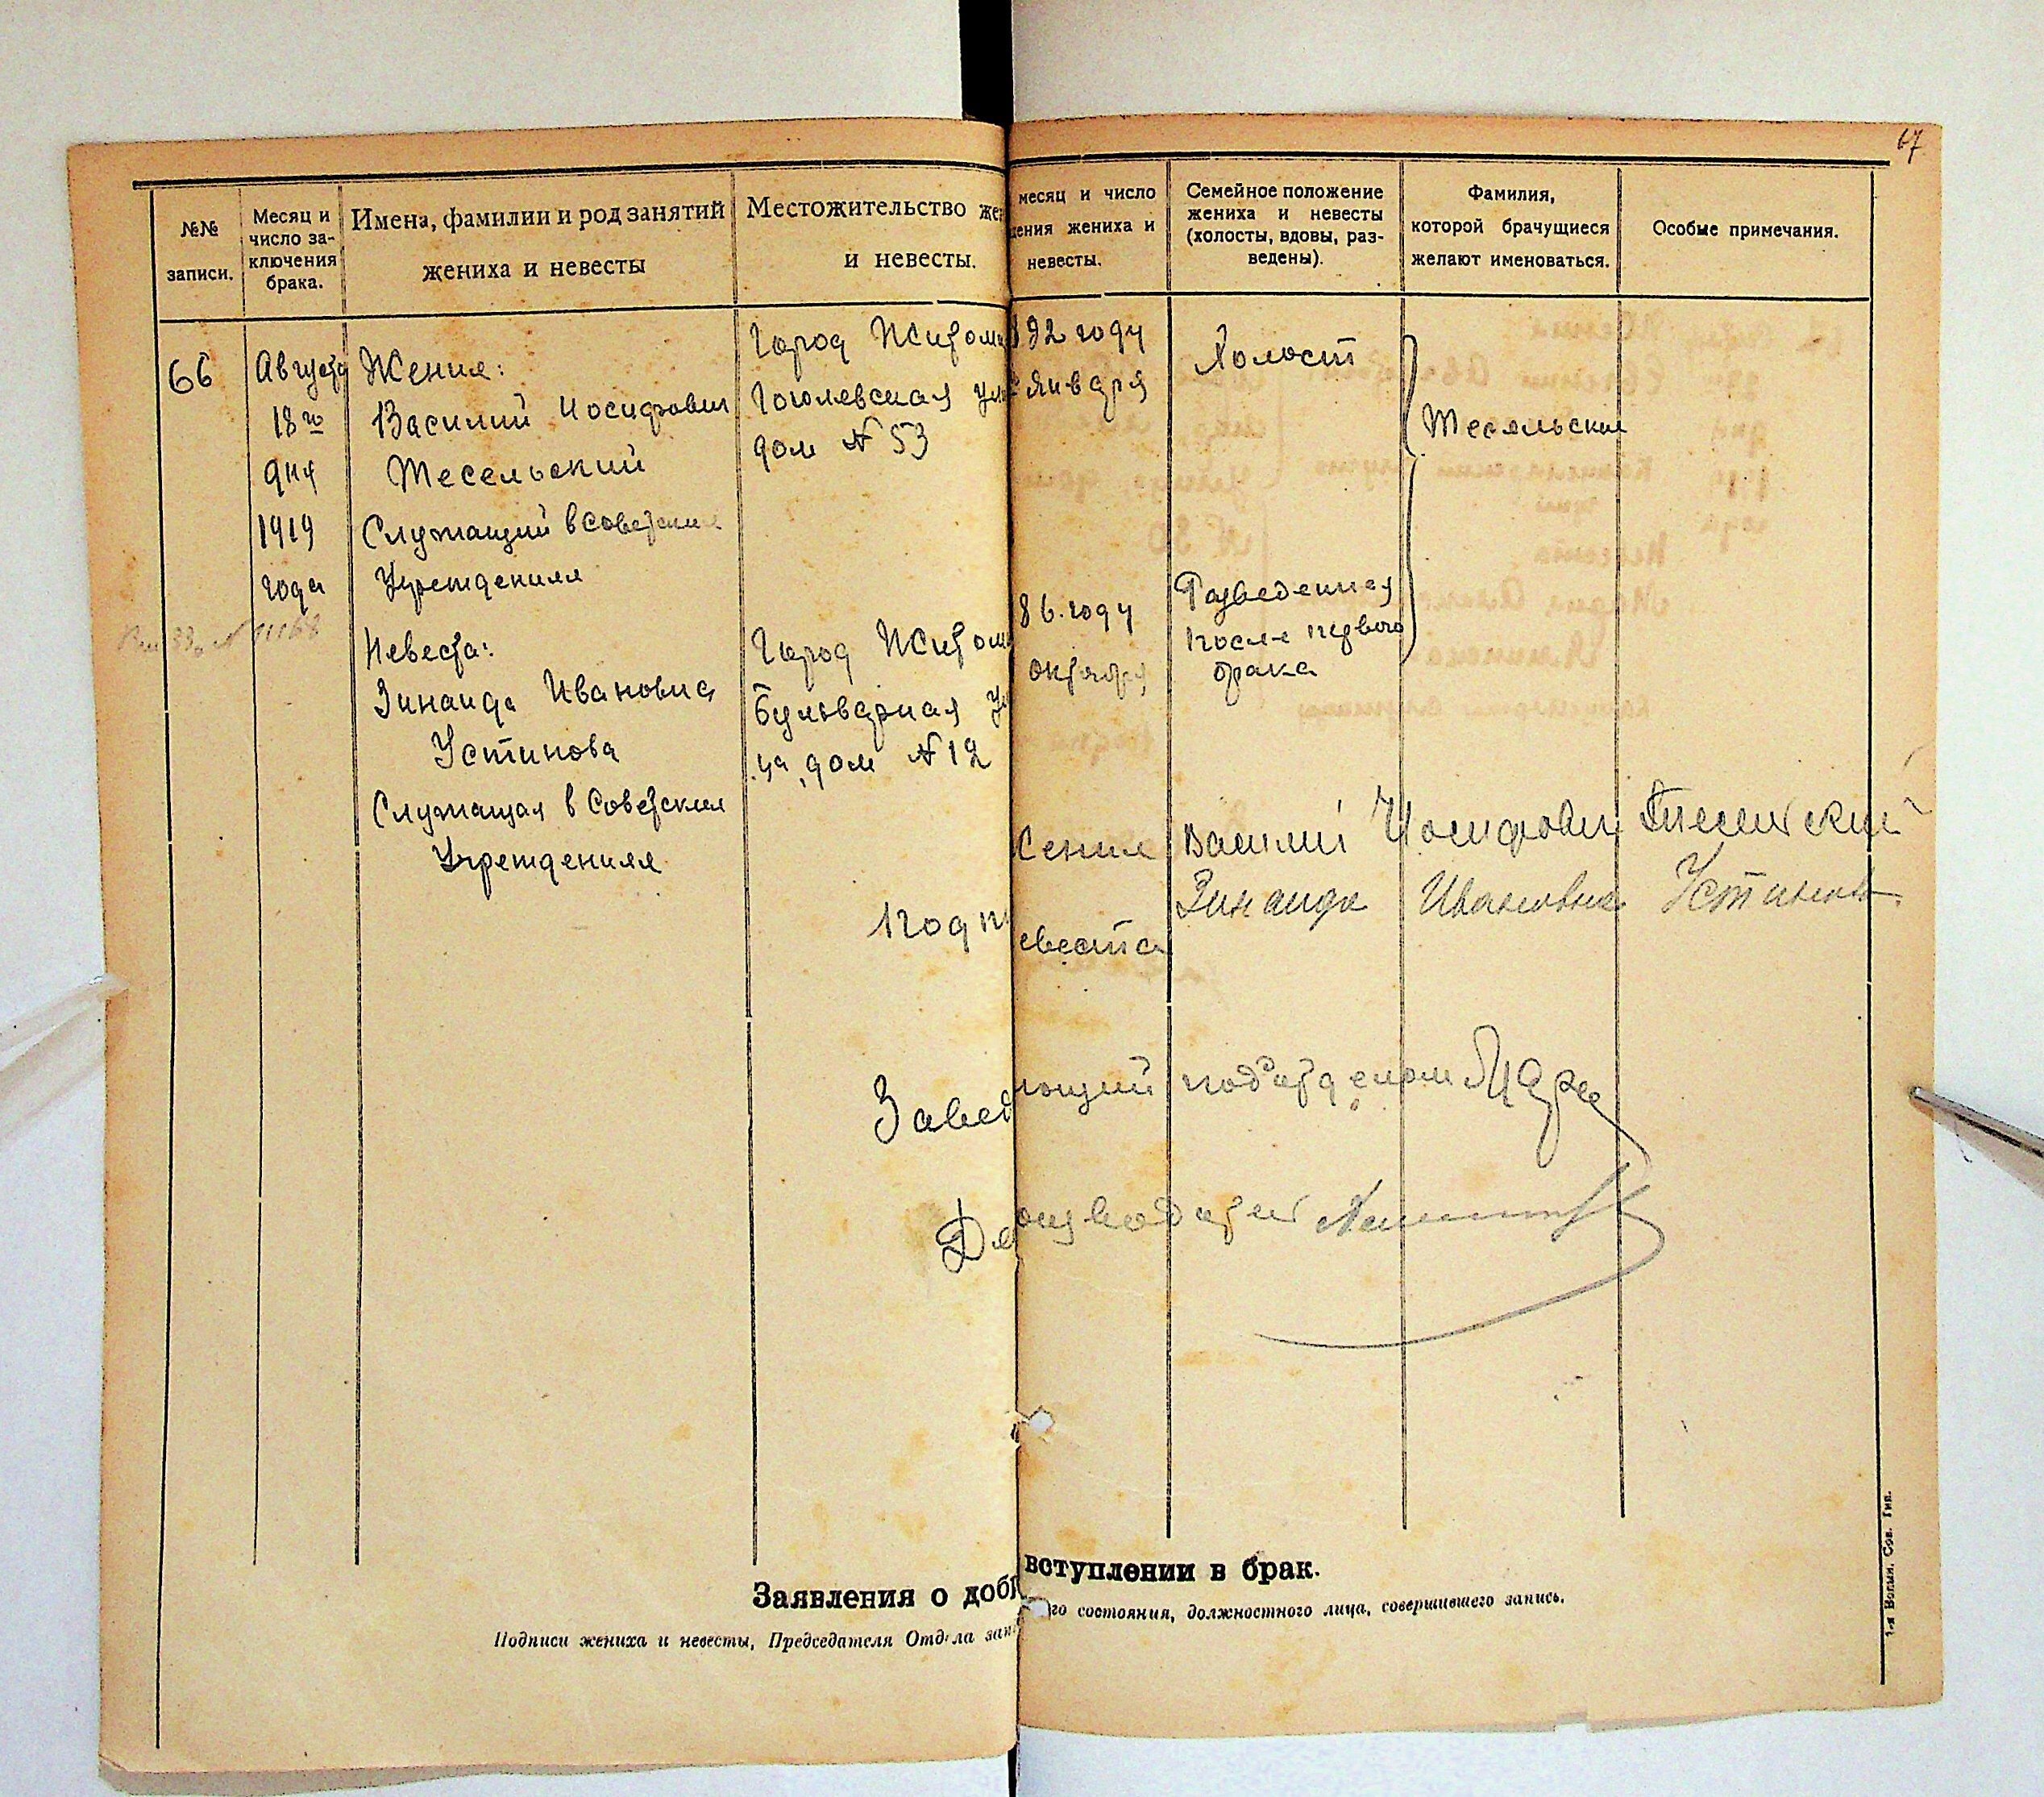 67
№№ записи.
Месяц и число заключения брака.
Имена, фамилии и род занятий жениха и невесты
Местожительство
и невесты.
месяц и число
жениха и
невесты.
Семейное положение
жениха и невесты
(холосты, вдовы, раз-
ведены).
Фамилия,
которой брачущиеся
желают именоваться.
Особые примечания.
66
Августа
18го
дня
1919
года
Жених:
Василий Иосифович
Тесельский
Служащий в Советских
Учреждениях
Невеста:
Зинаида Ивановна
Устинова
Служащая в Советских
Учреждениях
Город Житом
Гоголевская ули
дом № 53
Город Житом
Бульварная Ули
ца, дом № 12
892 году
января
86 году
октября
Холост
Разведенная
после первого
брака
Тесельские
Жених Василий Иосифович Тесельский
Зинаида Ивановна Устинова
евеста
Завед
ющий подотделом
Де
Заявления о доб
вступлении в брак.
Подписи жениха и невесты, Председателя Отдела зап
го состояния, должностного лица, совершившего запись.
1-я Волын. Сов. Тип.